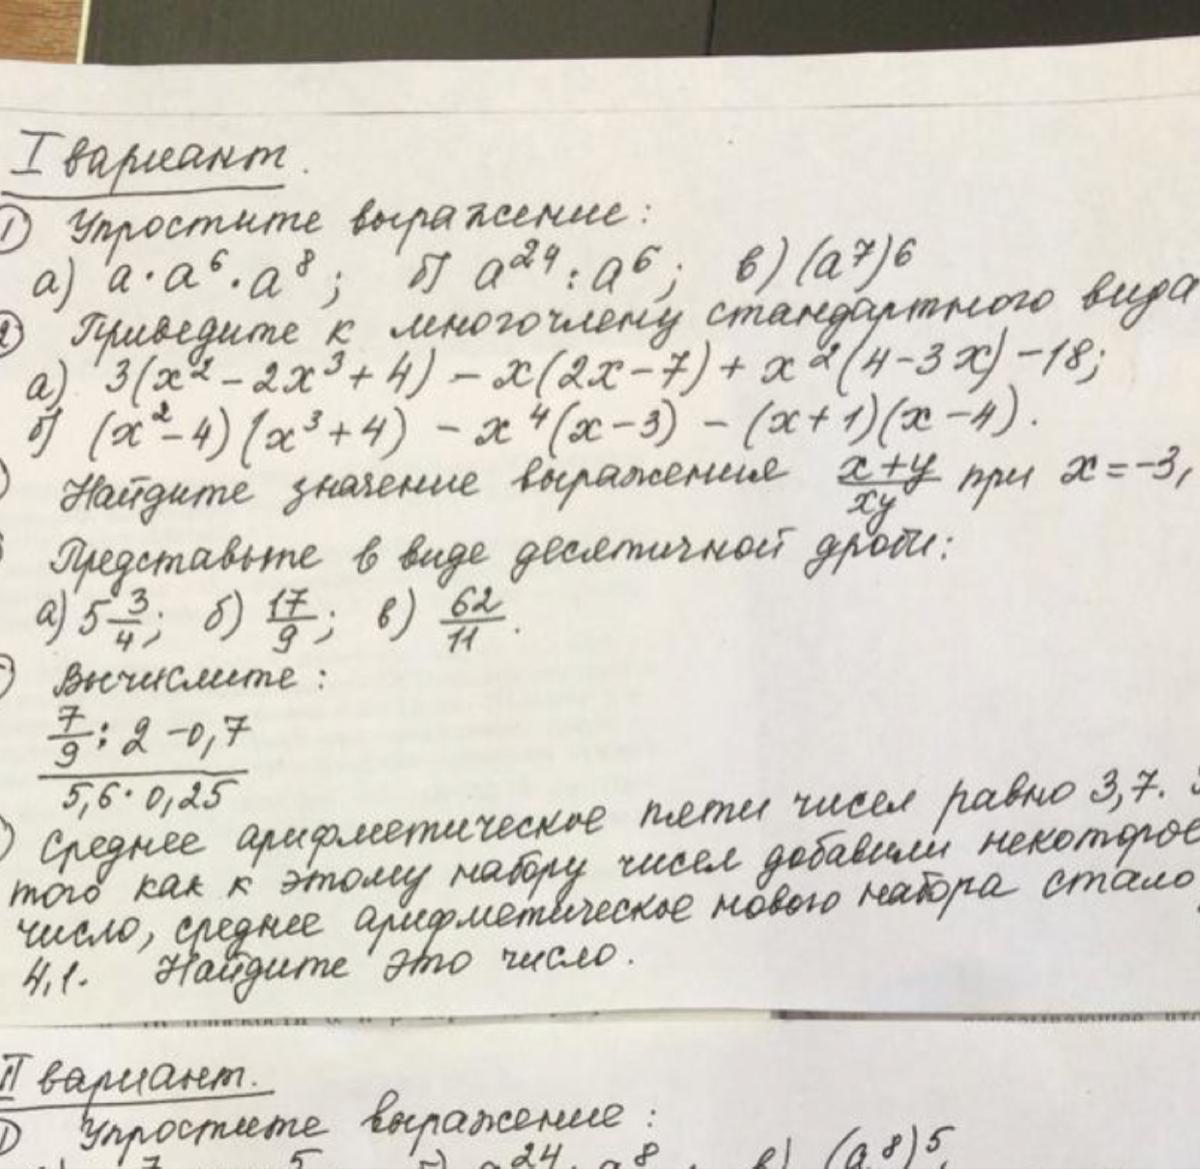 I вариант.
① Упростите выражение:
а) a·a⁶·a⁸; б) a²⁴:a⁶; в) (a⁷)⁶
② Приведите к многочлену стандартного вида
а) 3(x²-2x³+4) - x(2x-7) + x²(4-3x) - 18;
б) (x²-4)(x³+4) - x⁴(x-3) - (x+1)(x-4).
Найдите значение выражения (x+y)/(xy) при x=-3,
Представьте в виде десятичной дроби:
а) 5 3/4; б) 17/9; в) 62/11.
Вычислите:
7/9 : 2 - 0,7
5,6·0,25
Среднее арифметическое пяти чисел равно 3,7.
того как к этому набору чисел добавили некоторое
число, среднее арифметическое нового набора стало
4,1. Найдите это число.
II вариант.
① Упростите выражение:
в) (a⁸)⁵